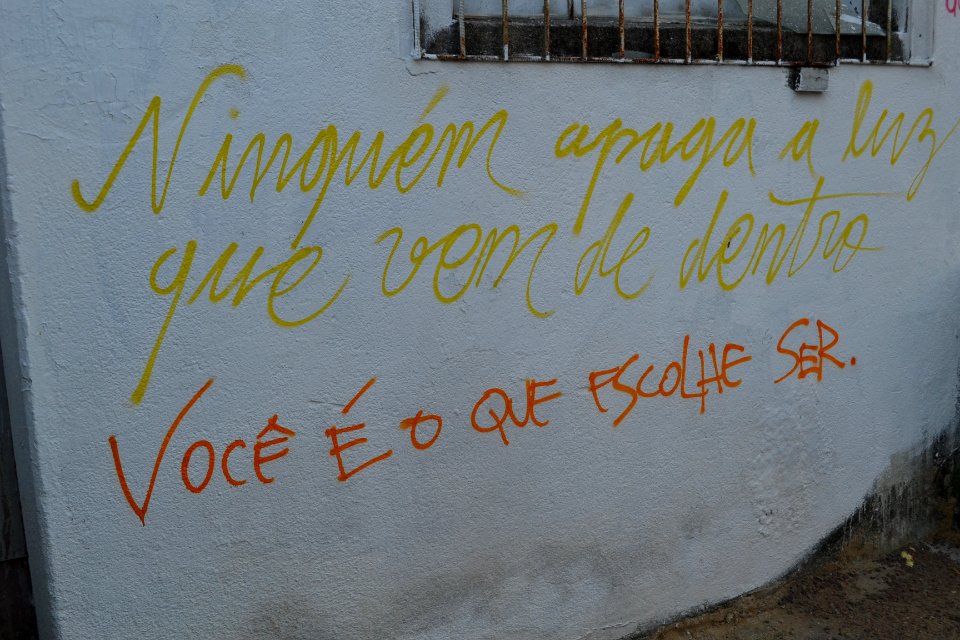 Ninguém apaga a luz
que vem de dentro
VOCÊ É O QUE ESCOLHE SER.